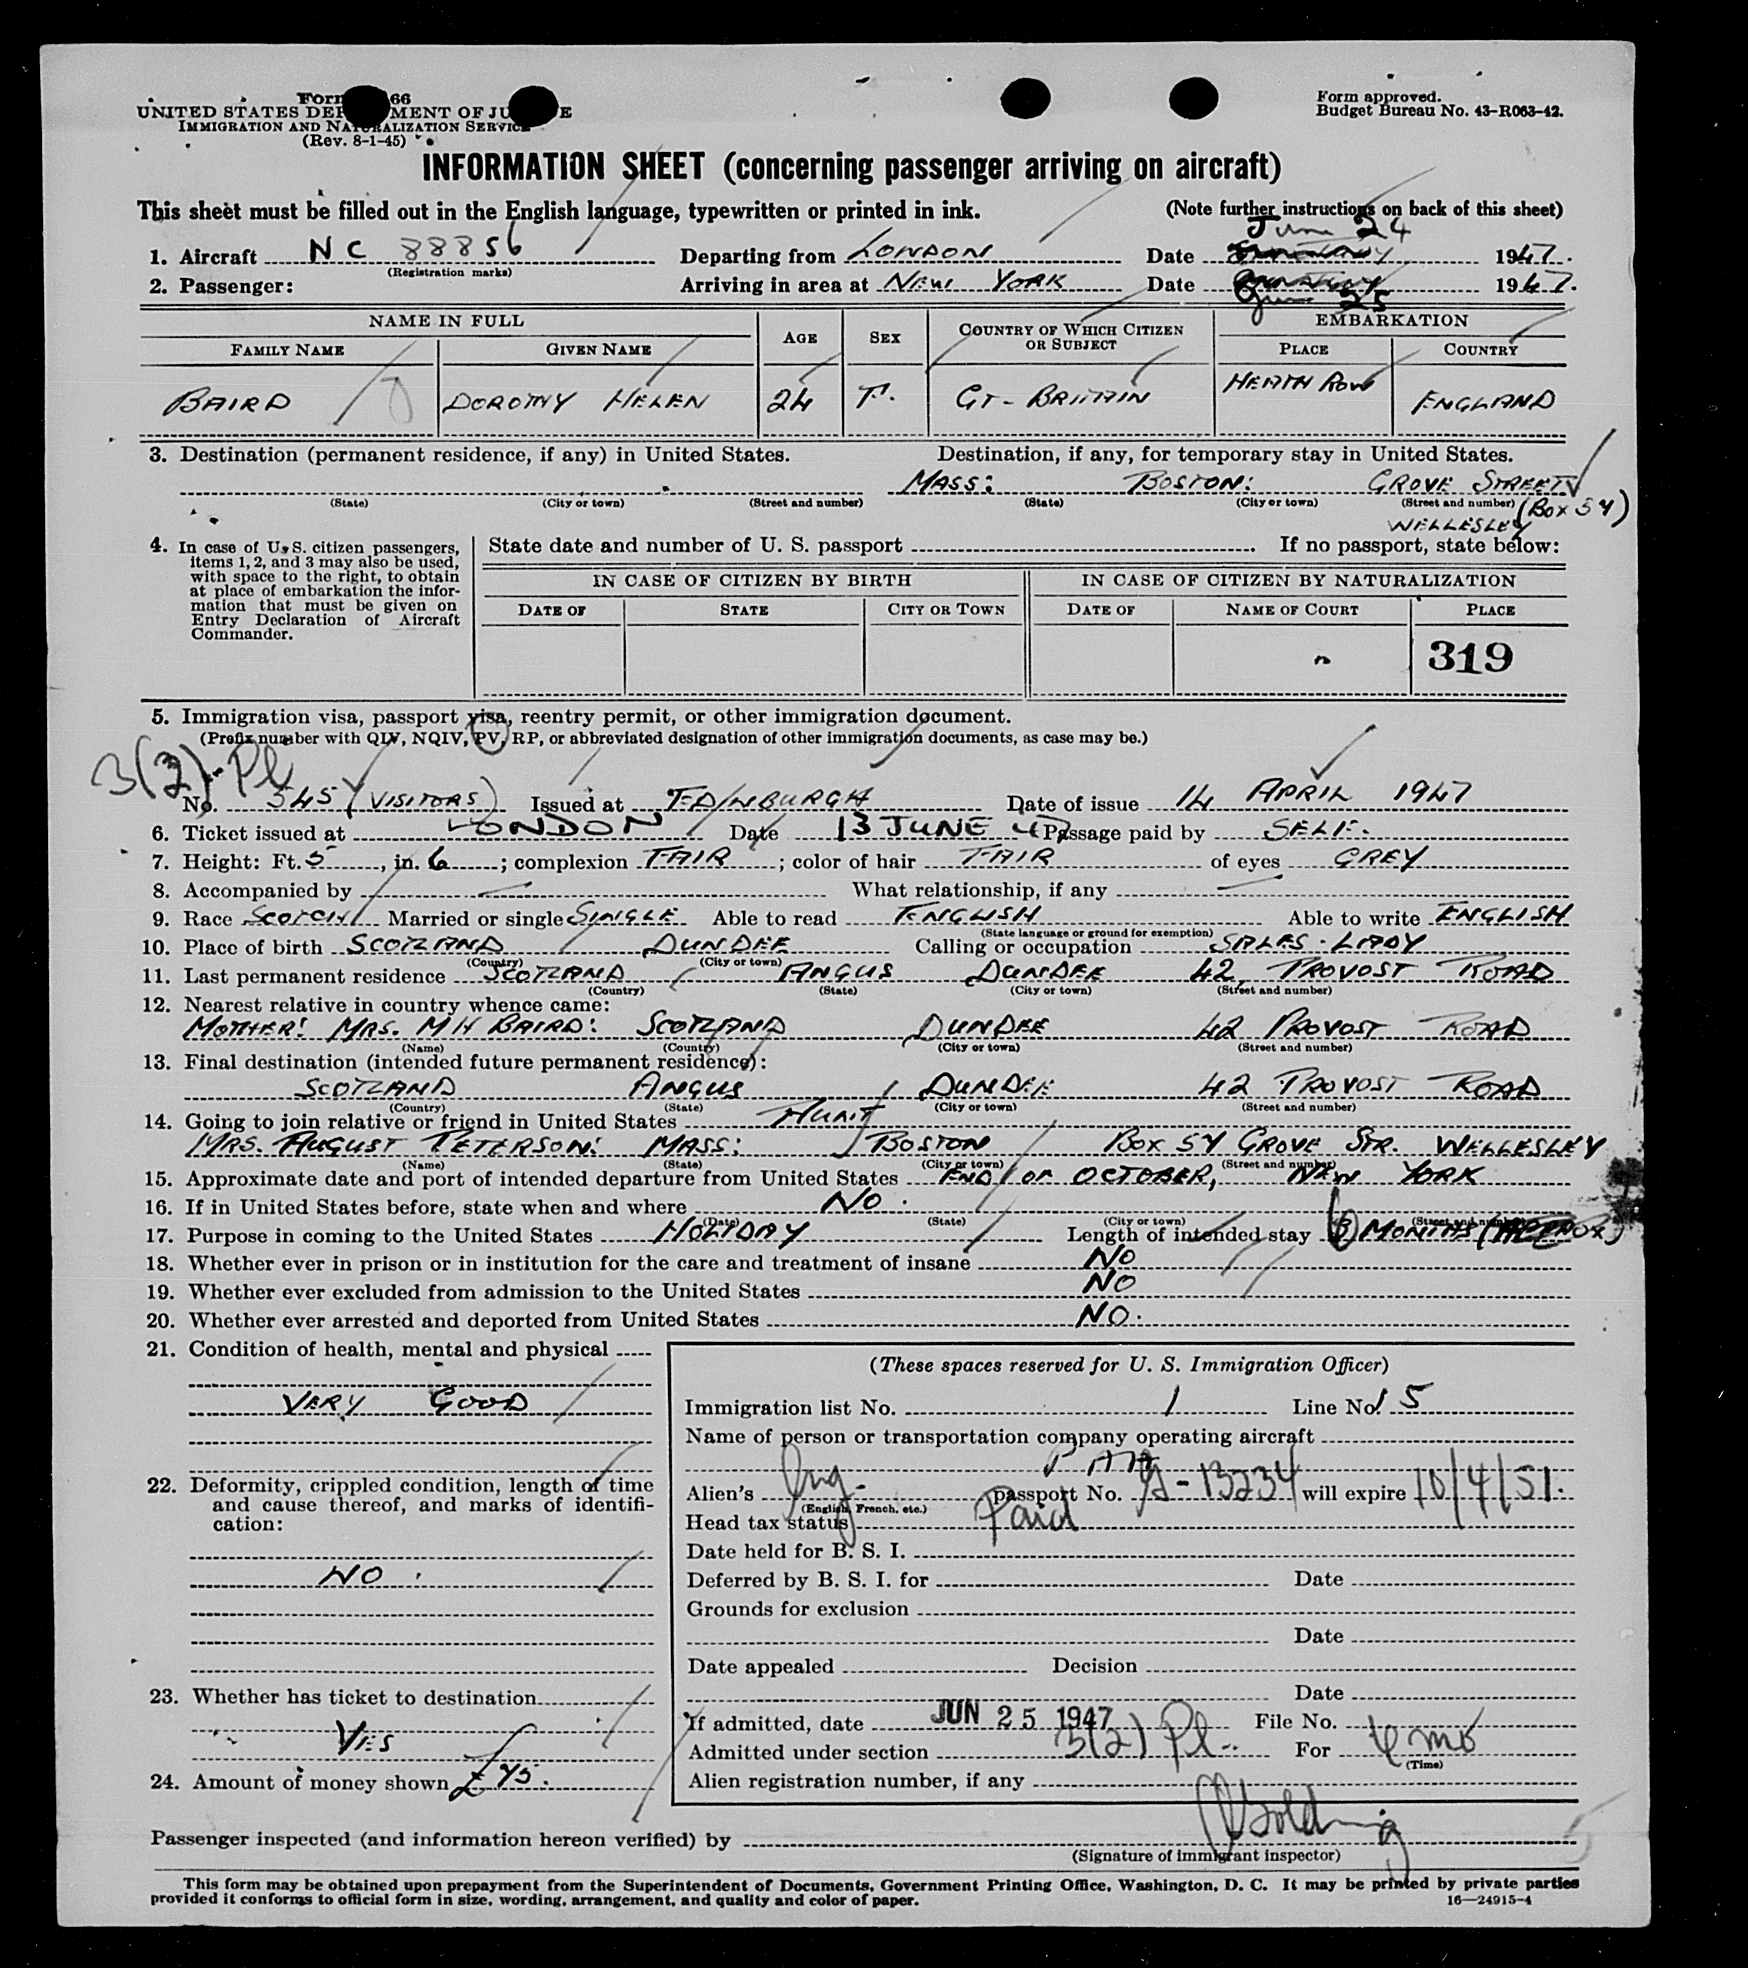 Form 66
UNITED STATES DEPARTMENT OF JUSTICE
IMMIGRATION AND NATURALIZATION SERVICE
(Rev. 8-1-45)
Form approved.
Budget Bureau No. 43-R063-42.
INFORMATION SHEET (concerning passenger arriving on aircraft)
This sheet must be filled out in the English language, typewritten or printed in ink. (Note further instructions on back of this sheet)
June 24
1. Aircraft NC 88856 Departing from LONDON Date 1947.
(Registration marks)
2. Passenger: Arriving in area at NEW YORK Date 1947.
June 25
NAME IN FULL AGE SEX COUNTRY OF WHICH CITIZEN OR SUBJECT EMBARKATION
FAMILY NAME GIVEN NAME PLACE COUNTRY
BAIRD DOROTHY HELEN 24 F. GT-BRITAIN HEATH ROW ENGLAND
3. Destination (permanent residence, if any) in United States. Destination, if any, for temporary stay in United States.
MASS: BOSTON: GROVE STREET
(State) (City or town) (Street and number) (State) (City or town) (Street and number) (BOX 54)
WELLESLEY
4. In case of U. S. citizen passengers, items 1, 2, and 3 may also be used, with space to the right, to obtain at place of embarkation the information that must be given on Entry Declaration of Aircraft Commander.
State date and number of U. S. passport If no passport, state below:
IN CASE OF CITIZEN BY BIRTH IN CASE OF CITIZEN BY NATURALIZATION
DATE OF STATE CITY OR TOWN DATE OF NAME OF COURT PLACE
319
5. Immigration visa, passport visa, reentry permit, or other immigration document.
(Prefix number with QIV, NQIV, PV, RP, or abbreviated designation of other immigration documents, as case may be.)
3(2) Pl
No. 545 (VISITORS) Issued at EDINBURGH Date of issue 14 APRIL 1947
6. Ticket issued at LONDON Date 13 JUNE 47 Passage paid by SELF.
7. Height: Ft. 5, in. 6; complexion FAIR; color of hair FAIR of eyes GREY
8. Accompanied by — What relationship, if any —
9. Race SCOTCH Married or single SINGLE Able to read ENGLISH Able to write ENGLISH
(State language or ground for exemption)
10. Place of birth SCOTLAND DUNDEE Calling or occupation SALES-LADY
(Country) (City or town)
11. Last permanent residence SCOTLAND ANGUS DUNDEE 42 PROVOST ROAD
(Country) (State) (City or town) (Street and number)
12. Nearest relative in country whence came:
MOTHER: MRS. M H BAIRD: SCOTLAND DUNDEE 42 PROVOST ROAD
(Name) (Country) (City or town) (Street and number)
13. Final destination (intended future permanent residence):
SCOTLAND ANGUS DUNDEE 42 PROVOST ROAD
(Country) (State) (City or town) (Street and number)
14. Going to join relative or friend in United States AUNT
MRS. AUGUST PETERSON: MASS: BOSTON BOX 54 GROVE STR. WELLESLEY
(Name) (State) (City or town) (Street and number)
15. Approximate date and port of intended departure from United States END OF OCTOBER, NEW YORK
16. If in United States before, state when and where NO.
(Date) (State) (City or town) (Street and number)
17. Purpose in coming to the United States HOLIDAY Length of intended stay 6 MONTHS (APPROX)
18. Whether ever in prison or in institution for the care and treatment of insane NO
19. Whether ever excluded from admission to the United States NO
20. Whether ever arrested and deported from United States NO.
21. Condition of health, mental and physical
VERY GOOD
22. Deformity, crippled condition, length of time and cause thereof, and marks of identification:
NO.
23. Whether has ticket to destination
YES
24. Amount of money shown £75.
(These spaces reserved for U. S. Immigration Officer)
Immigration list No. 1 Line No. 15
Name of person or transportation company operating aircraft
PAA
Alien's Eng. passport No. 13234 will expire 10/4/51.
(English, French, etc.)
Head tax status Paid
Date held for B. S. I.
Deferred by B. S. I. for Date
Grounds for exclusion
Date
Date appealed Decision
Date
If admitted, date JUN 25 1947 File No.
Admitted under section 3(2) Pl. For 6 mo
(Time)
Alien registration number, if any
Passenger inspected (and information hereon verified) by
(Signature of immigrant inspector)
This form may be obtained upon prepayment from the Superintendent of Documents, Government Printing Office, Washington, D. C. It may be printed by private parties
provided it conforms to official form in size, wording, arrangement, and quality and color of paper. 16—24915-4